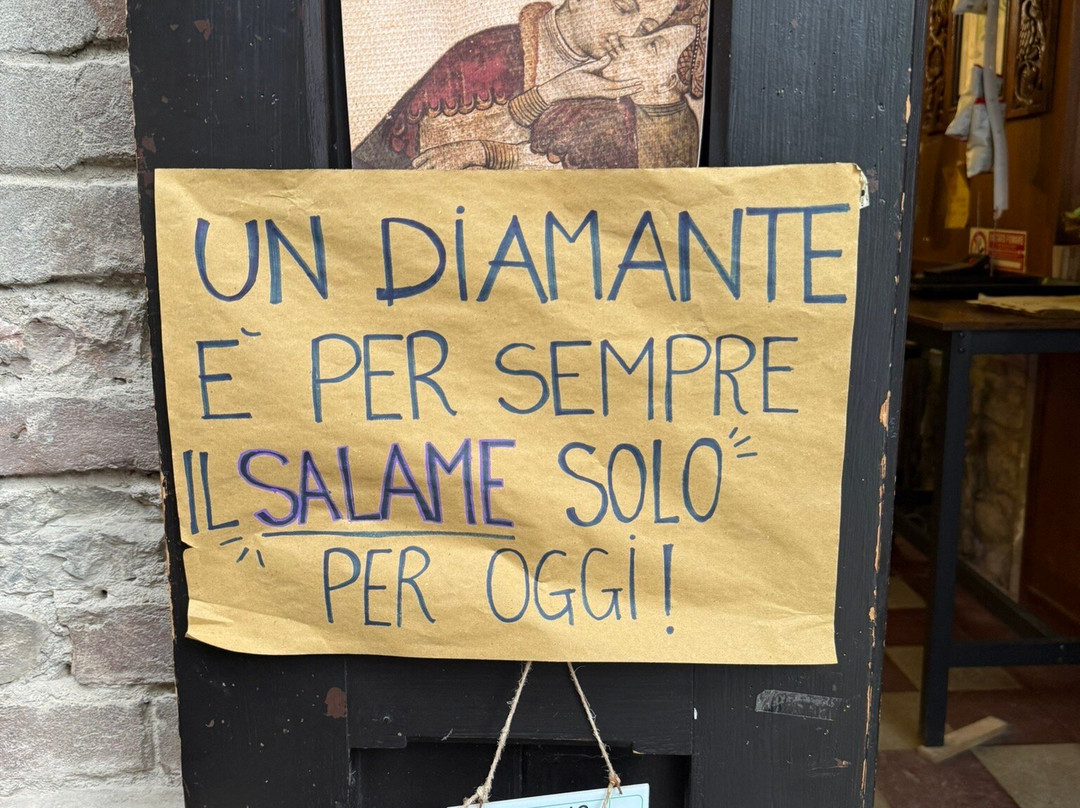 UN DiAMANTE
E` PER SEMPRE
IL SALAME SOLO
PER OGGi!